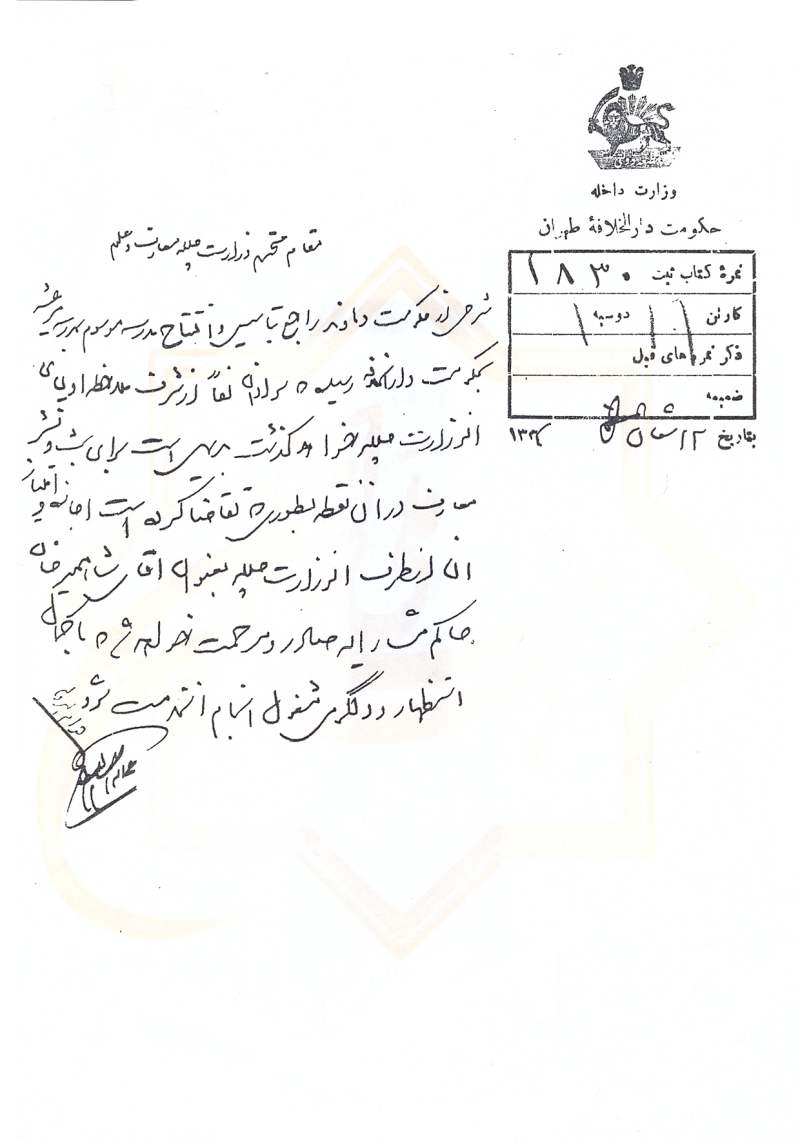 وزارت داخله
حکومت دارالخلافهٔ طهران
نمرهٔ کتاب ثبت ۱۸۳۰
کارتن
دوسیه
ذکر نمره‌های قبل
ضمیمه
بتاریخ ۱۳
مقام وزارت جلیله معارف و
شرحی از حکومت دماوند راجع بتاسیس و افتتاح مدرسه موسوم بمدرسه
بحکومت رسیده سواد آن لفاً از شرف ملاحظه اولیای
آنوزارت جلیله خواهد گذشت بدیهی است برای بسط و نشر
معارف در آن نقطه بطوریکه تقاضا کرده است اجازه و امتیاز
آن از طرف آنوزارت جلیله بعنوان آقای
حاکم صادر و مرحمت خواهد با کمال
استظهار و دلگرمی مشغول انجام خدمت شود